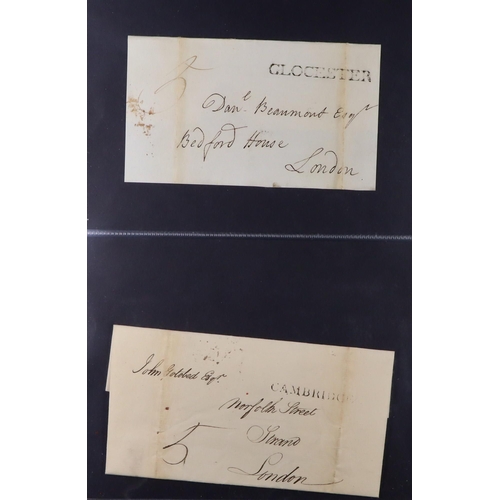 GLOCESTER
5
Danl. Beaumont Esqr
Bedford House
London
John Esqr.
CAMBRIDGE
Norfolk Street
5
Strand
London